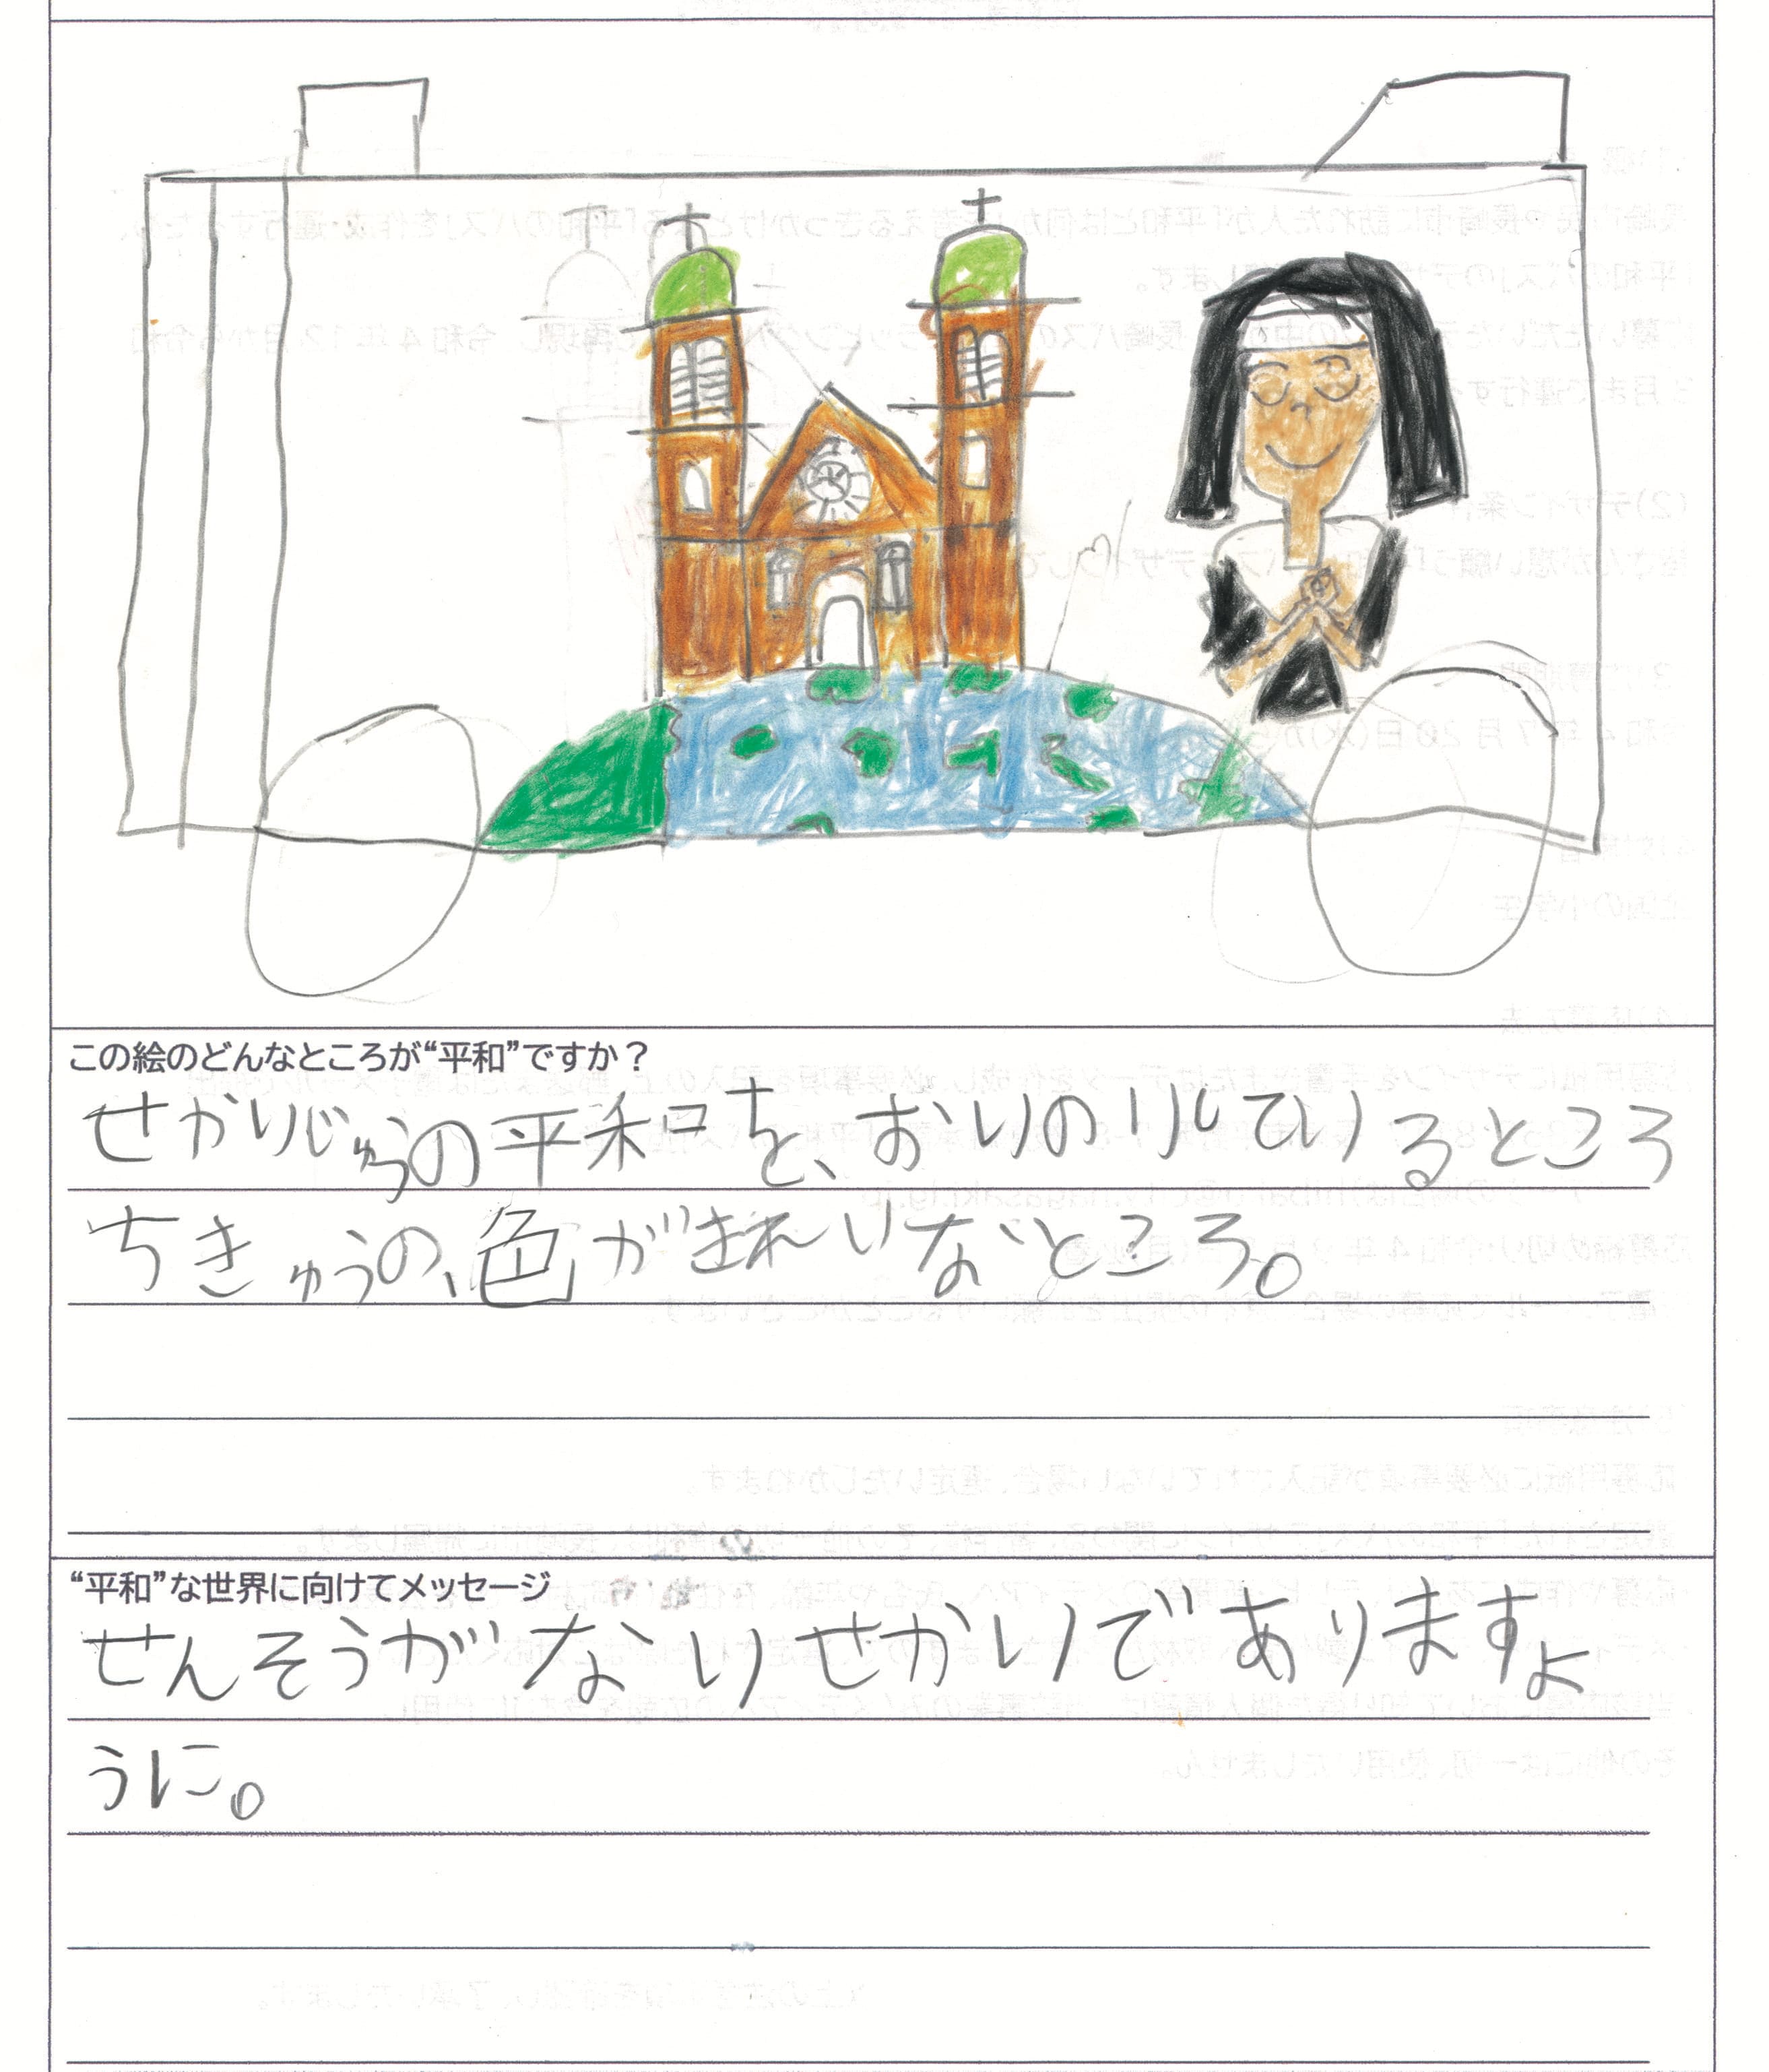 この絵のどんなところが“平和”ですか？
せかいじゅうの平和を、おいのりしているところ
ちきゅうの、色がきれいなところ。
“平和”な世界に向けてメッセージ
せんそうがないせかいでありますよ
うに。